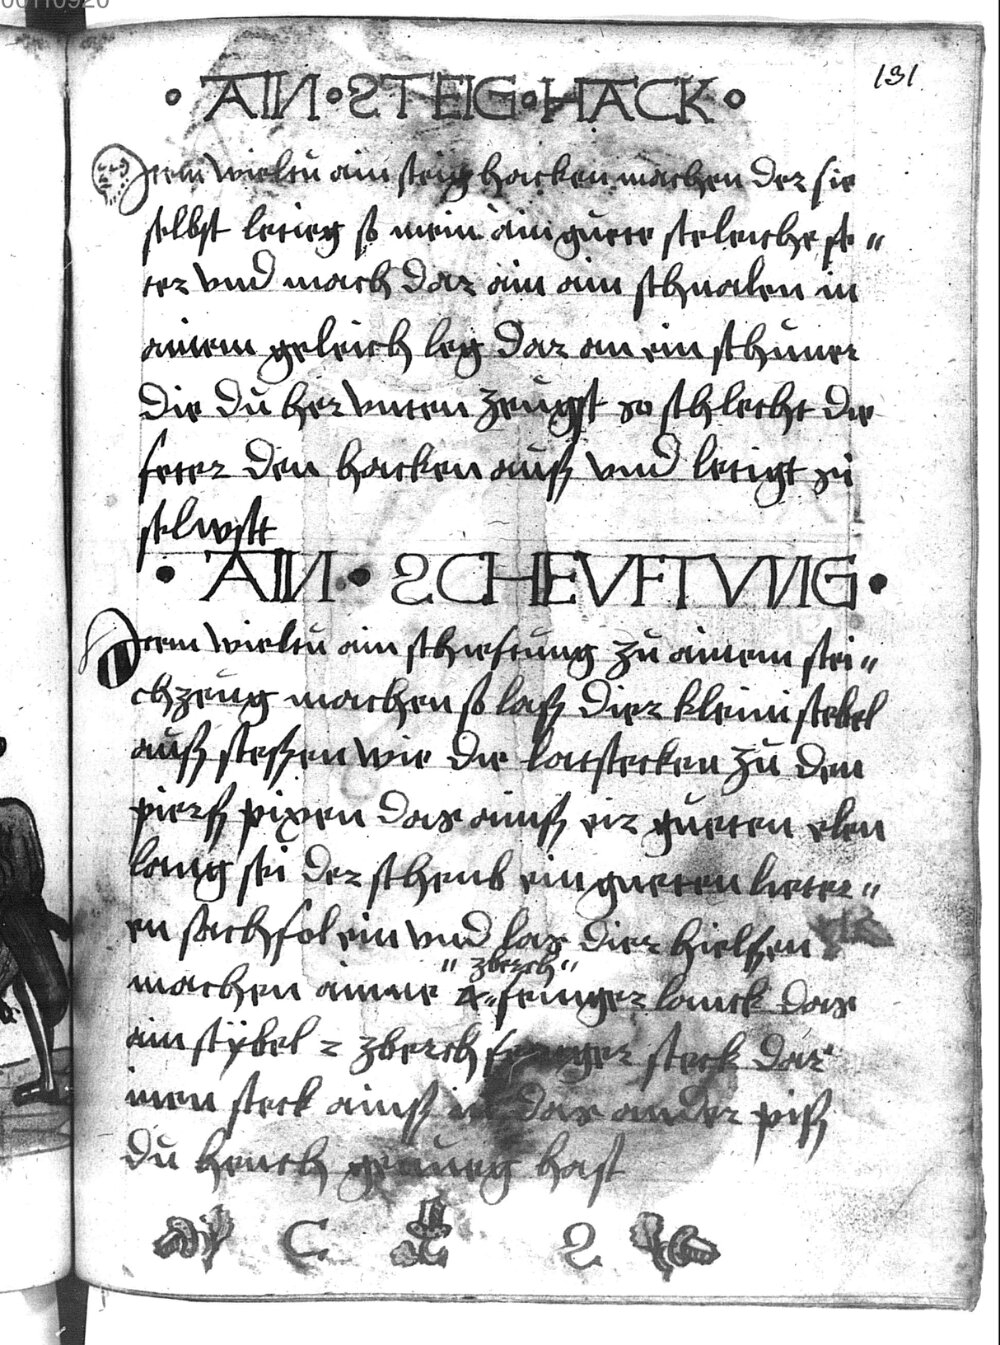 131
• AIN • STEIG • HACK •
Item wieltu ain steig hacken machen der sie
selbst letieg so nein ain guete steleiche fe=
ter vnd mach dar ain ain schnalen in
ainem geleich leg dar an ein schnuer
die du her vnten zeugst so schlecht die
feter den hacken auß vnd letigt zu
selwstt
• AIN • SCHEVFTVNG •
Item wieltu ain schieftung zu ainem stei=
chzeug machen so laß dier kleini stebel
auß steßen wie die latstecken zu den
pierß pixen das ainß eir gueten elen
lang sei der scheub ein gueten lieter=
en sackh fol ein vnd las dier hielßen
"zberch"
machen ainne 4 finger lanck das
ain stÿbel 2 zberch finger steck dar
inen steck ainß in das ander piß
du hench genueg hast
C 2